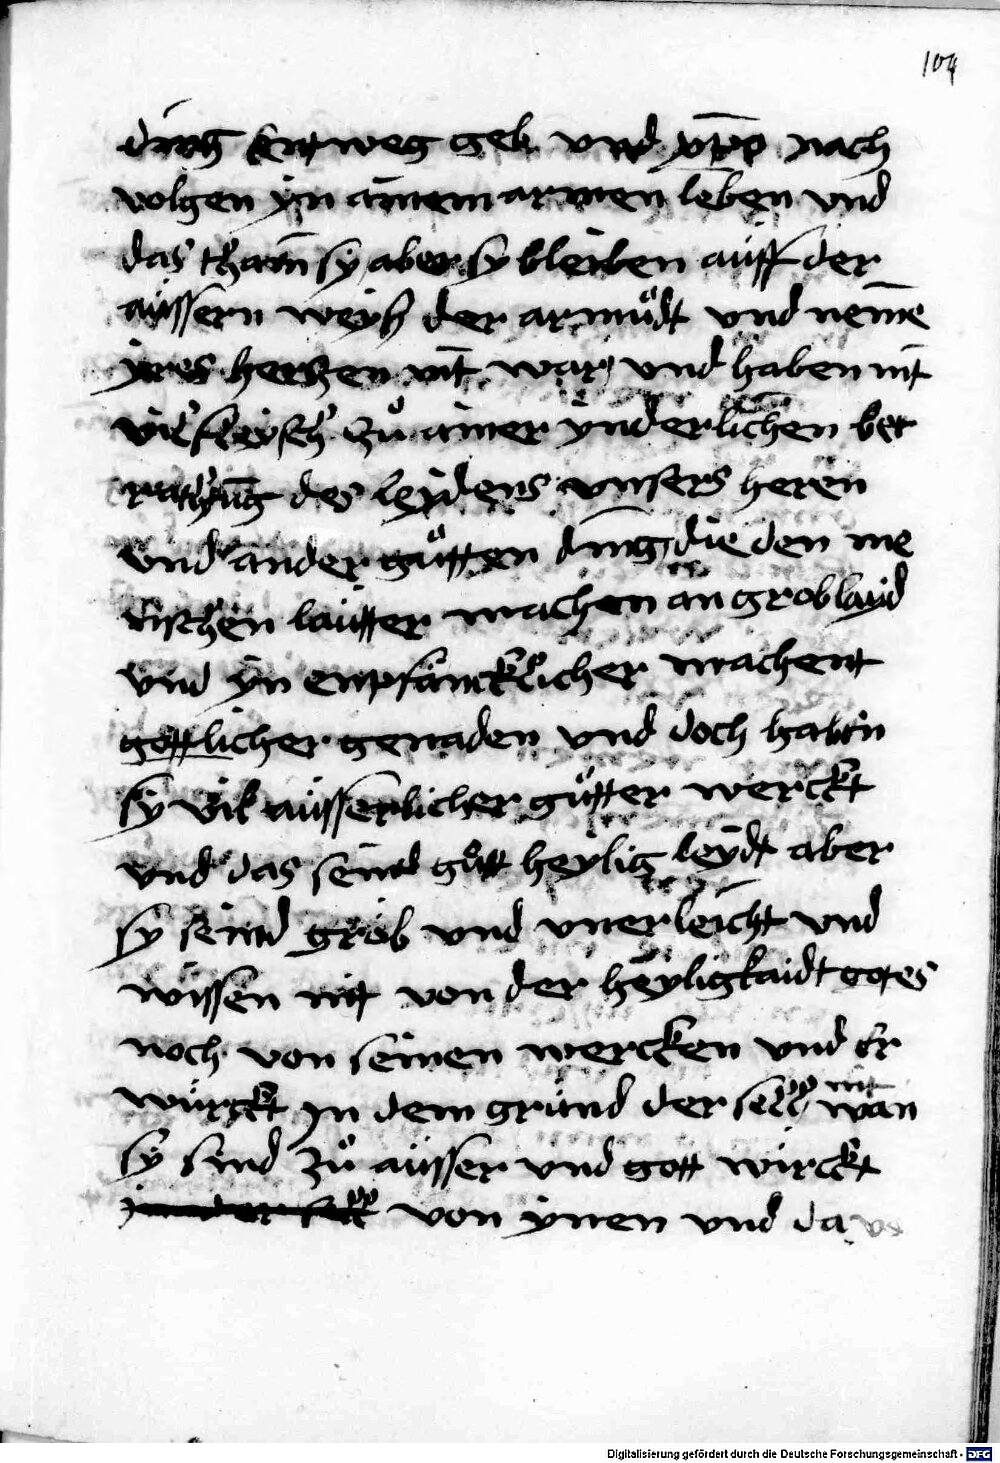 104
ding entweg geb vnd xp̄o nach
volgen yn ainem armen leben vnd
das thain̄ sy aber sy bleiben aüff der
aüssern weyß der armůdt vnd nem̄e
yres herczen nit war vnd haben nit
vil fleysch zů ainer ynderlichen bet
rachtung des leydens vnsers heren
vnd ander gůtten ding die den me
nschen lautter machen an grob layd
vnd yn enpfäncklicher machent
gottlicher genaden vnd doch haben
sy vil aüsserlicher gůtter werckt
vnd das seind gůtt heylig leydt aber
sy seind grob vnd vnerleicht vnd
wissen nit von der heyligkaidt gotes
noch von seinen wercken vnd er
würckt jn dem gründ der sell nit wan
sy sind zů aüsser vnd gott wirckt
von ynen vnd da
Digitalisierung gefördert durch die Deutsche Forschungsgemeinschaft - DFG